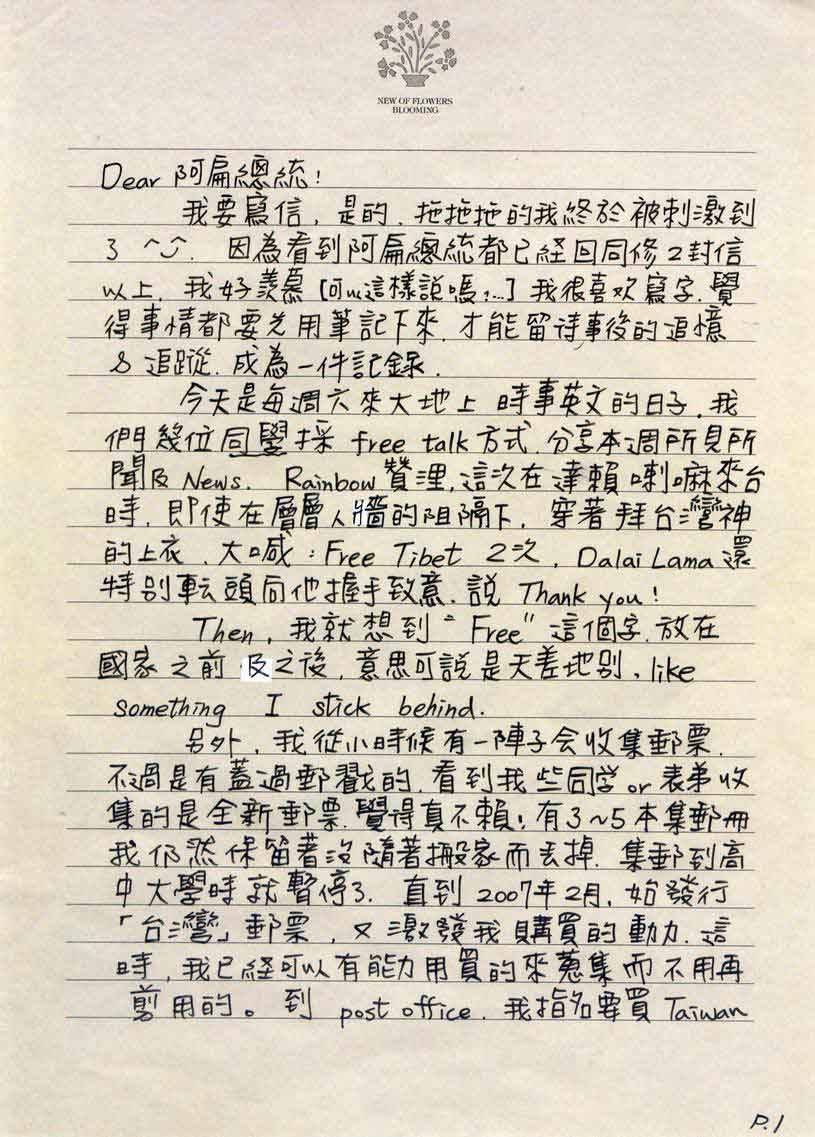 NEW OF FLOWERS
BLOOMING
Dear 阿扁總統!
我要寫信,是的.拖拖拖的我終於被刺激到
了 ^◡^. 因為看到阿扁總統都已経回同修2封信
以上,我好羨慕[可以這樣說嗎?...]我很喜欢寫字.覺
得事情都要先用筆記下來,才能留待事後的追憶
& 追蹤.成為一件記錄.
今天是每週六來大地上 時事英文的日子.我
們幾位同學採 free talk 方式.分享本週所見所
聞及 News. Rainbow 贊浬,這次在達賴喇嘛來台
時,即使在層層人牆的阻隔下,穿著拜台灣神
的上衣、大喊:Free Tibet 2次,Dalai Lama 還
特别転頭向他握手致意.説 Thank you!
Then,我就想到 "Free" 這個字.放在
國家之前 及之後,意思可説是天差地别,like
something I stick behind.
另外,我從小時候有一陣子会收集郵票.
不過是有蓋過郵戳的.看到我些同学 or 表弟收
集的是全新郵票.覺得真不賴!有3~5本集郵冊
我仍然保留著沒隨著搬家而丢掉.集郵到高
中大學時就暫停了. 直到 2007年2月,始發行
「台灣」郵票,又激發我購買的動力.這
時,我已経可以有能力用買的來蒐集而不用再
剪用的。到 post office. 我指名要買 Taiwan
P.1